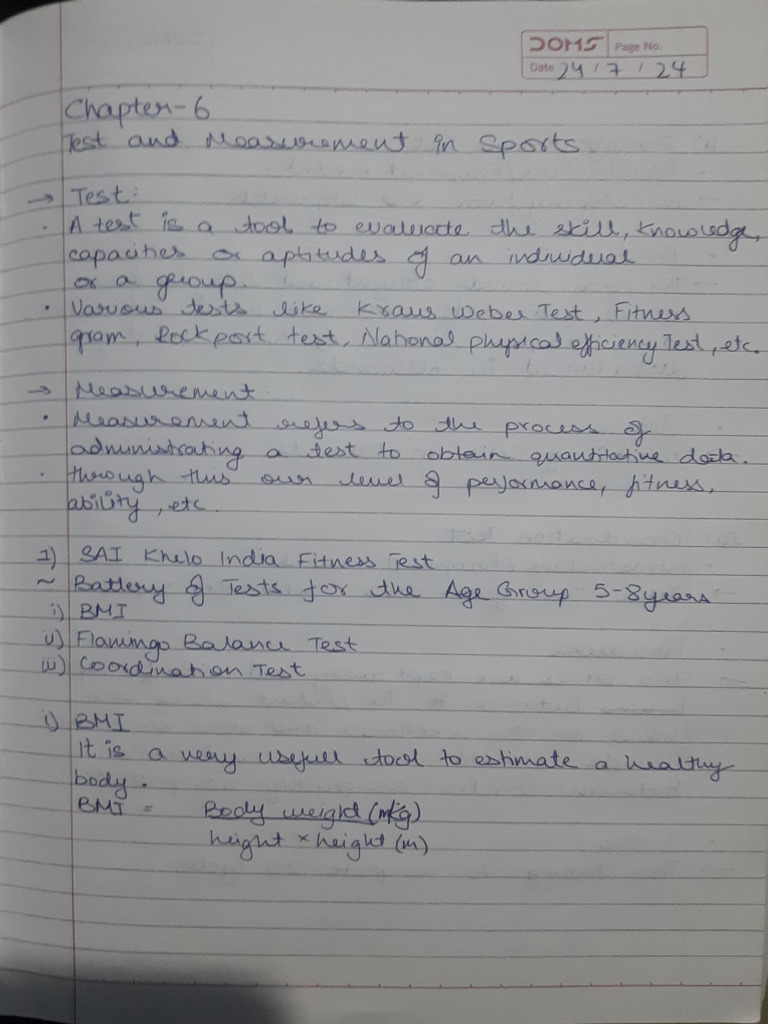 DOMS Page No.
Date 24 / 7 / 24
Chapter-6
Test and Measurement in Sports
→ Test:
· A test is a tool to evaluate the skill, knowledge,
capacities or aptitudes of an individual
or a group.
· Various tests like Kraus Weber Test, Fitness
gram, Rockport test, National physical efficiency Test, etc.
→ Measurement
· Measurement refers to the process of
administrating a test to obtain quantitative data.
· through this our level of performance, fitness,
ability, etc.
1) SAI Khelo India Fitness Test
~ Battery of Tests for the Age Group 5-8 years
i) BMI
ii) Flamingo Balance Test
iii) Coordination Test
i) BMI
It is a very usefull tool to estimate a healthy
body.
BMI = Body weight (kg)
height × height (m)